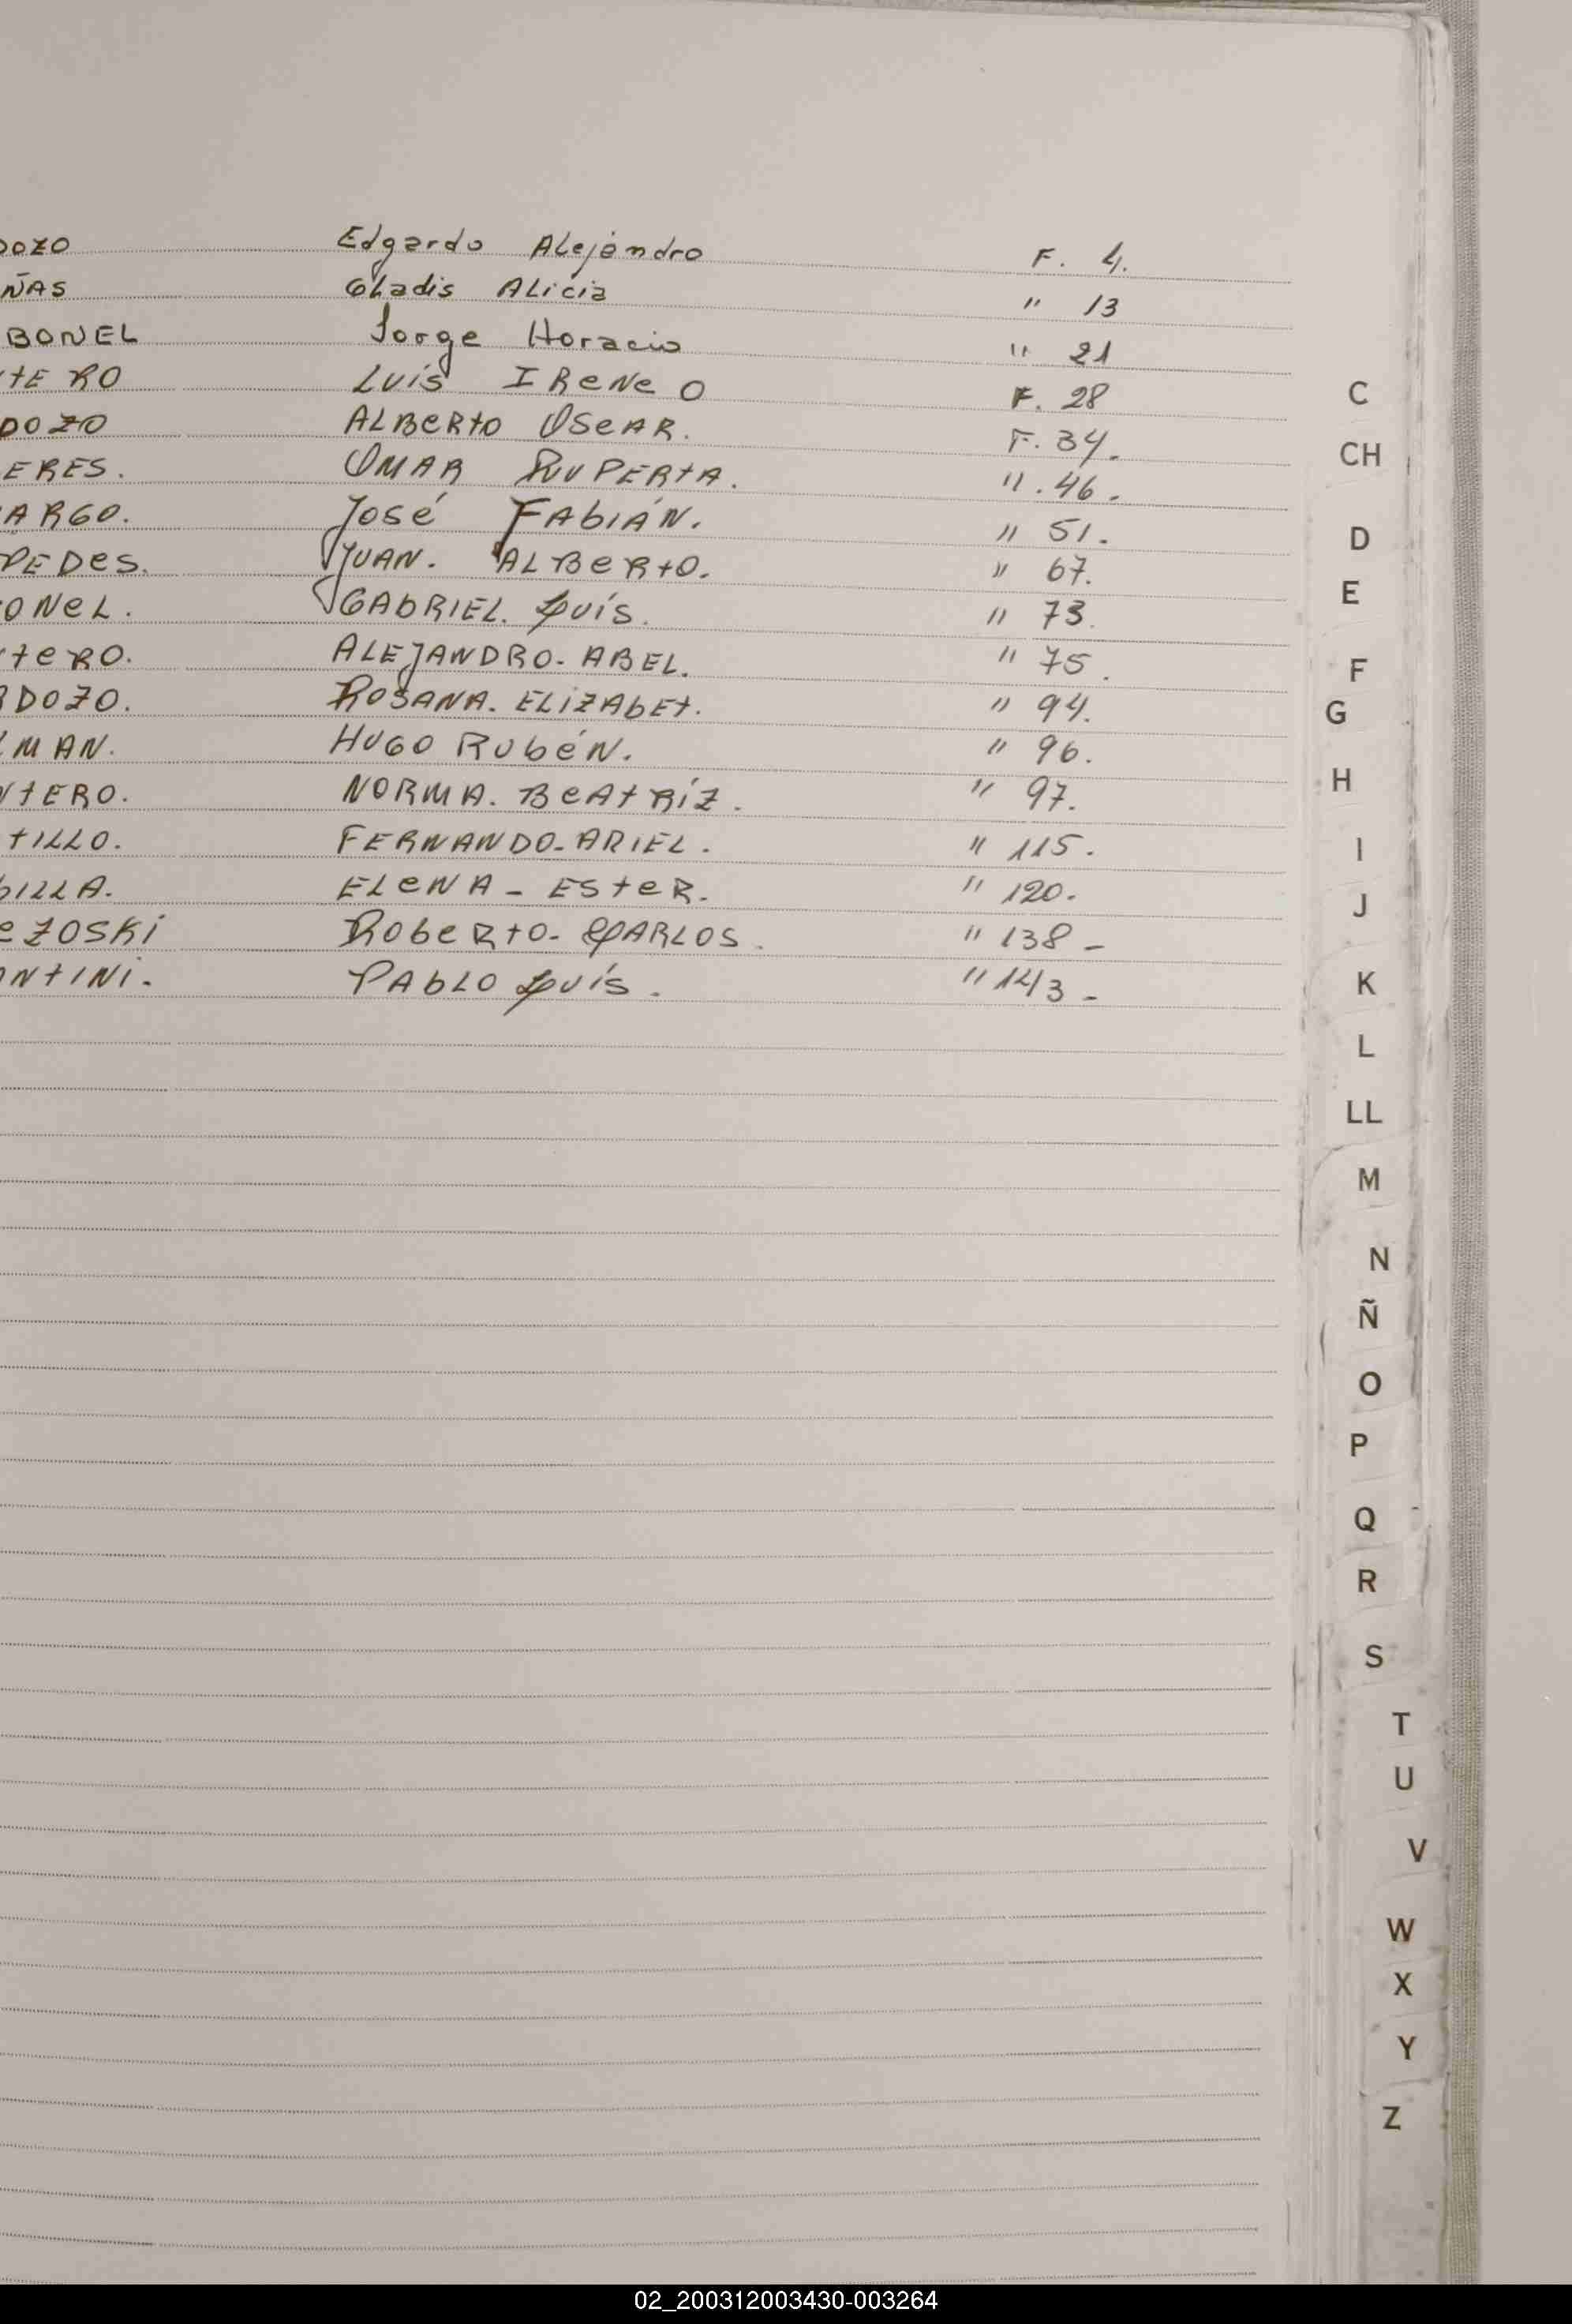 DOZO Edgardo Alejandro F. 4.
ÑAS Gladis Alicia " 13
BONEL Jorge Horacio " 21
TERO LUIS IRENEO F. 28
DOZO ALBERTO OSCAR. F. 34.
ERES. OMAR RUPERTA. ". 46.
ARGO. José FABIÁN. " 51.
PEDES. JUAN. ALBERTO. " 67.
ONEL. GABRIEL. Luís. " 73.
TERO. ALEJANDRO- ABEL. " 75.
RDOZO. ROSANA. ELIZABET. " 94.
MAN. HUGO RUBÉN. " 96.
NTERO. NORMA. BEATRÍZ. " 97.
TILLO. FERNANDO- ARIEL. " 115.
BILLA. ELENA - ESTER. " 120.
EZOSKI ROBERTO- CARLOS. " 138 -
ONTINI. PABLO Luís. " 143 -
C
CH
D
E
F
G
H
I
J
K
L
LL
M
N
Ñ
O
P
Q
R
S
T
U
V
W
X
Y
Z
02_200312003430-003264